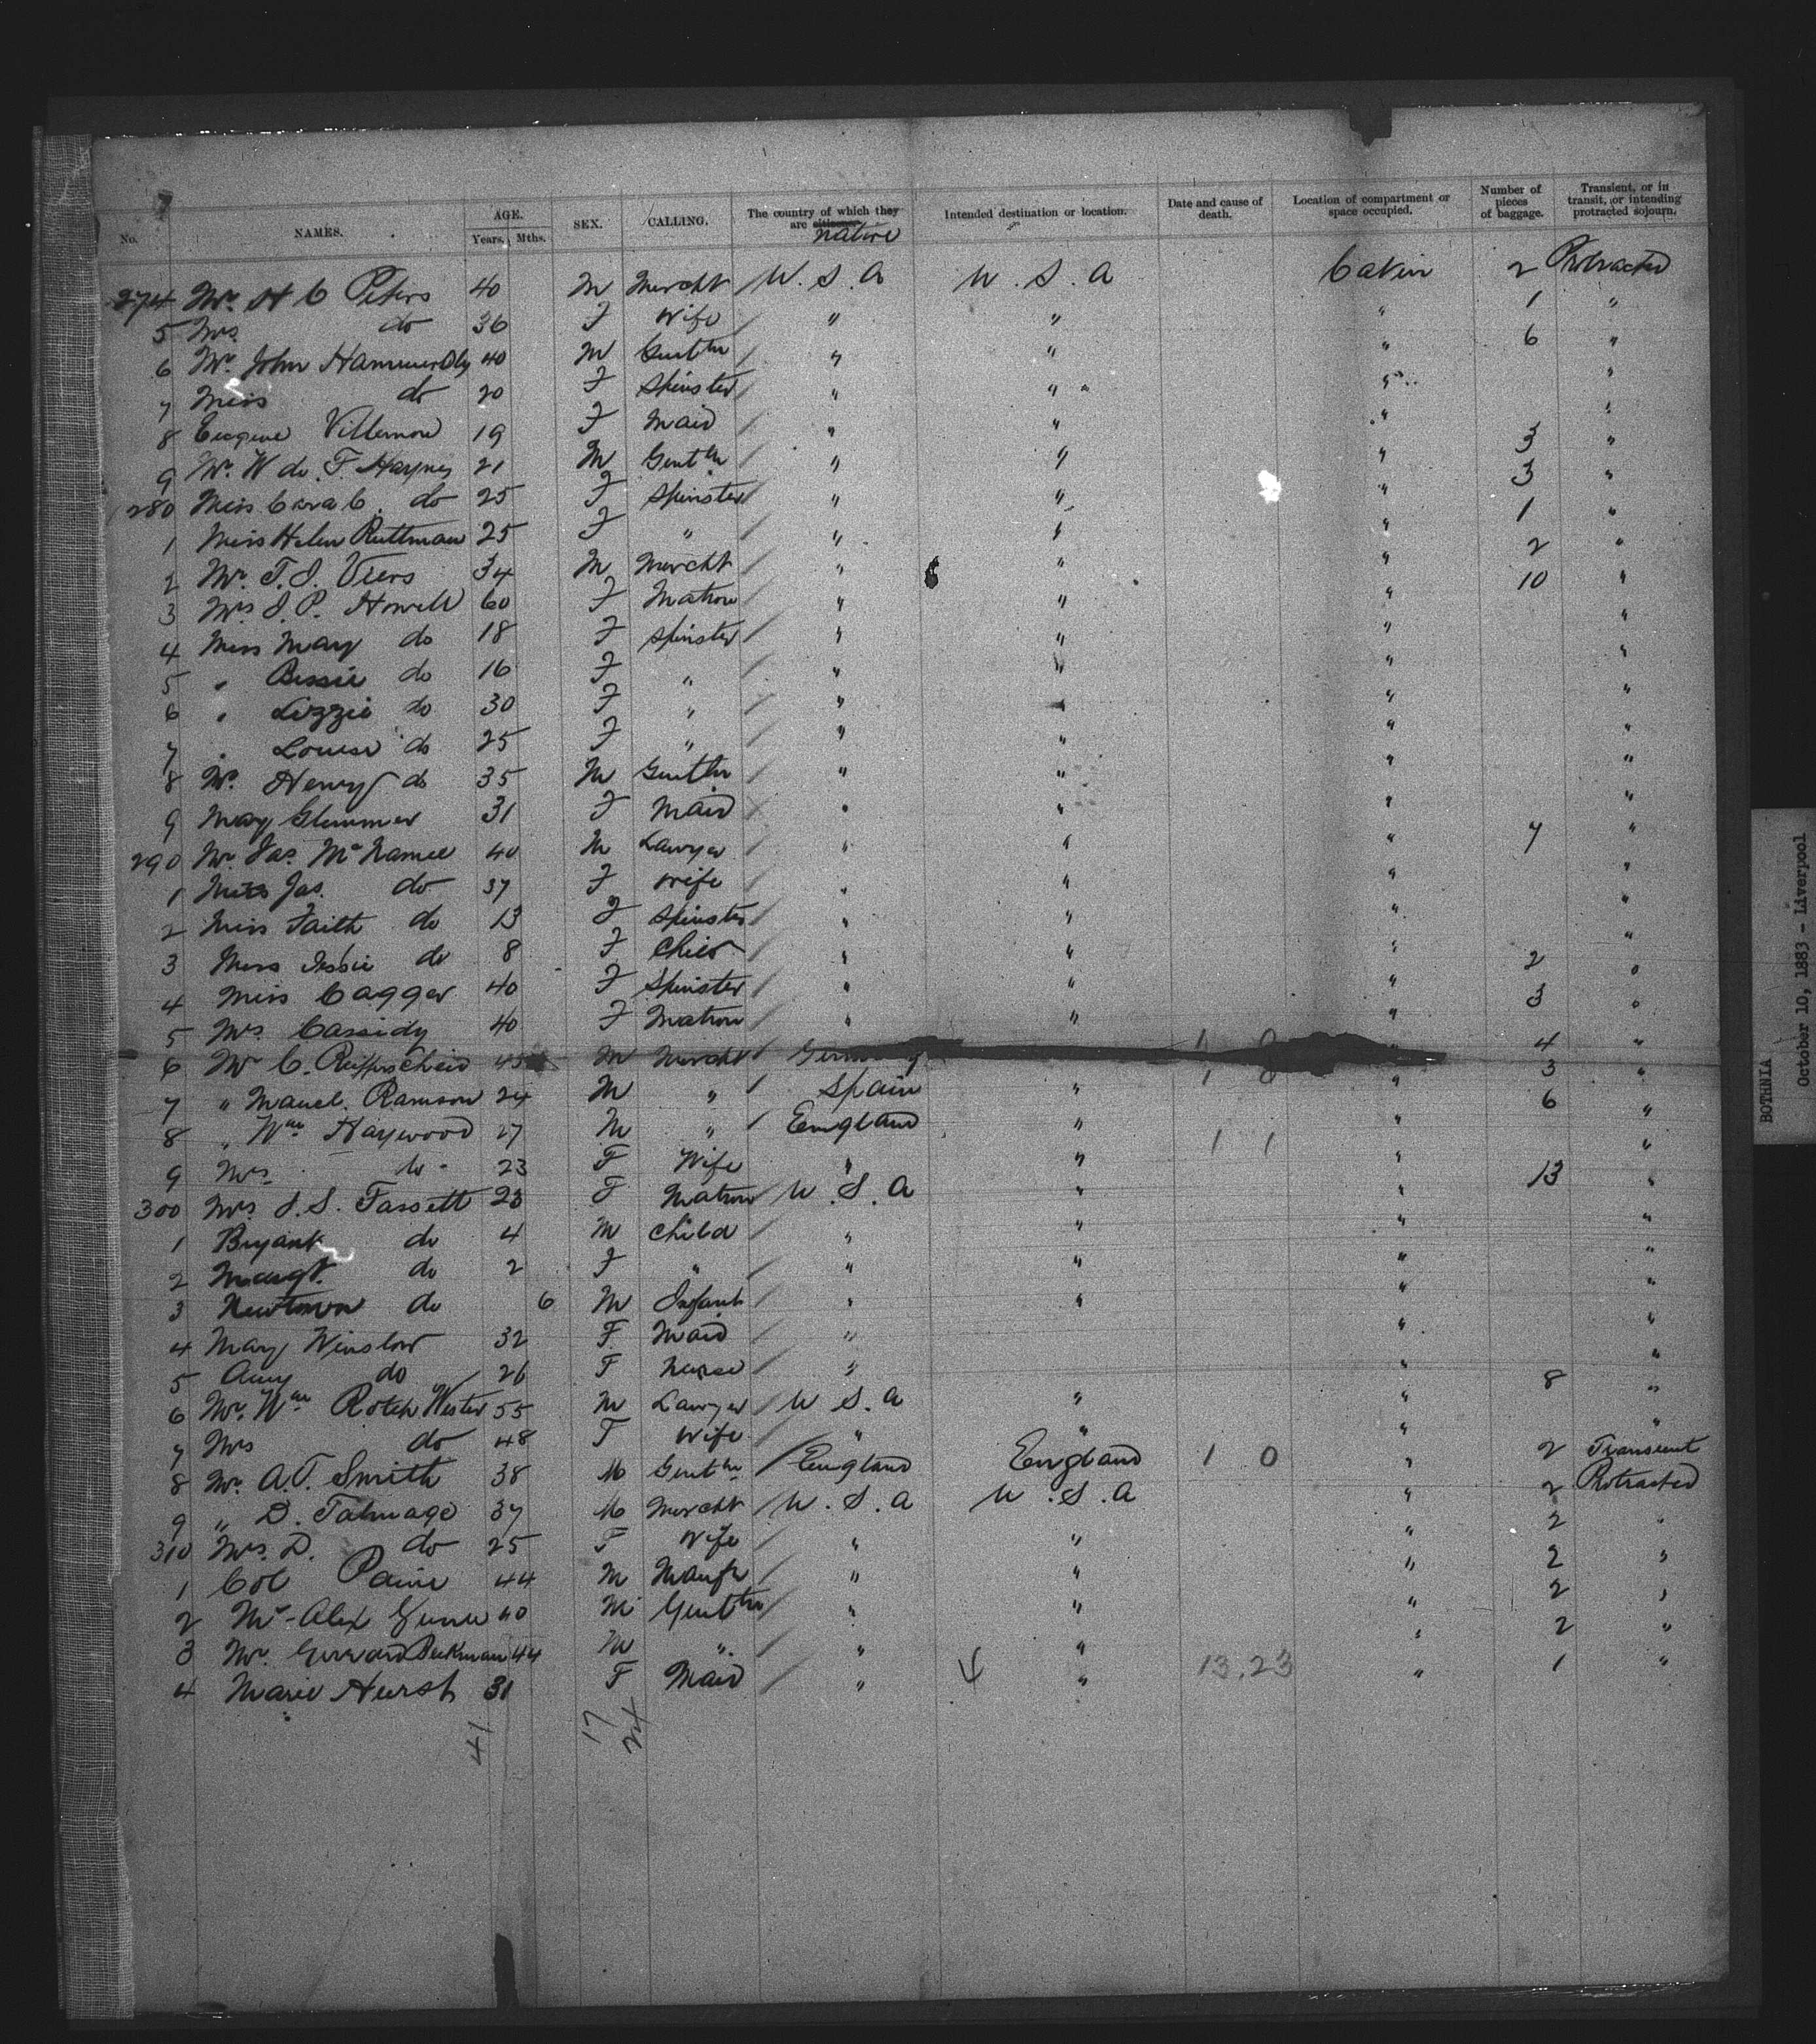 No. NAMES. AGE. Years. Mths. SEX. CALLING. The country of which they are citizens native Intended destination or location. Date and cause of death. Location of compartment or space occupied. Number of pieces of baggage. Transient, or in transit, or intending protracted sojourn.
274 Mr. H C Peters 40 M Mercht / U. S. A U. S. A Cabin 2 Protracted
5 Mrs do 36 F Wife / " " " 1 "
6 Mr. John Hammersly 40 M Gentln / " " " 6 "
7 Miss do 20 F Spinster / " " " "
8 Eugene 19 F Maid / " " " "
9 Mr. W de F. Haynes 21 M Gentln / " " " 3 "
280 Miss Cara C. do 25 F Spinster / " " " 3 "
1 Miss Helen Ruttman 25 F " / " " " 1 "
2 Mr. T. J. Viers 34 M Mercht / " " " 2 "
3 Mrs J. P. Howell 60 F Matron / " " " 10 "
4 Miss May do 18 F Spinster / " " " "
5 " Bessie do 16 F " / " " " "
6 " Lizzie do 30 F " / " " " "
7 " Louise do 25 F " / " " " "
8 Mr. Henry do 35 M Gentln / " " " "
9 May Glemmer 31 F Maid / " " " "
290 Mr Jas. McNamee 40 M Lawyer / " " " 7 "
1 Mrs Jas. do 37 F Wife / " " " "
2 Miss Faith do 13 F Spinster / " " " "
3 Miss Jessie do 8 F Child / " " " "
4 Miss Cagger 40 F Spinster / " " " 2 "
5 Mrs Cassidy 40 F Matron / " " " 3 "
6 Mr C. Reifferscheid 45 M Mercht / Germany 1 0 " 4 "
7 " Manel. Ramson 24 M " / Spain " 1 0 " 3 "
8 " Wm Haywood 27 M " / England " " 6 "
9 Mrs. do 23 F Wife " " 1 1 " "
300 Mrs J. S. Fassett 23 F Matron / U. S. A " " 13 "
1 Bryant do 4 M Child / " " " "
2 Margt. do 2 F " / " " " "
3 Newtown do 6 M Infant / " " " "
4 Mary Winslow 32 F. Maid / " " "
5 Amy do 26 F Nurse / " " "
6 Mr. Wm Rotch Wister 55 M Lawyer / U. S. A " " 8 "
7 Mrs do 48 F Wife / " " " "
8 Mr. A. T. Smith 38 M Gentln / England England 1 0 " 2 Transient
9 " D. Talmage 37 M Mercht / U. S. A U. S. A " 2 Protracted
310 Mrs. D. do 25 F Wife / " " " 2 "
1 Col Paine 44 M Manfr / " " " 2 "
2 Mr Alex Gunn 40 M Gentln / " " " 2 "
3 Mr. Gerrard Beekman 44 M " / " " " 2 "
4 Marie Hurst 31 F Maid / " 4 " 13.23 " 1 "
41 17 24
BOTHNIA
October 10, 1883 - Liverpool